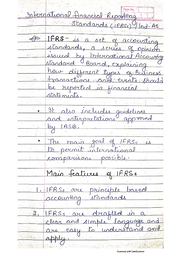 International Financial Reporting
Standards (IFRS) / Ind-AS
IFRS - is a set of accounting
standards, a series of opinion
issued by International Accounting
Standard Board, explaining
how different types of Business
transactions and events should
be reported in financial
statements.
• It also includes guidelines
and interpretations approved
by IASB.
• The main goal of IFRS is
to permit international
comparisons possible.
Main features of IFRSs
1. IFRSs are principle based
accounting standards.
2. IFRSs are drafted in a
clear and simple language and
are easy to understand and
apply